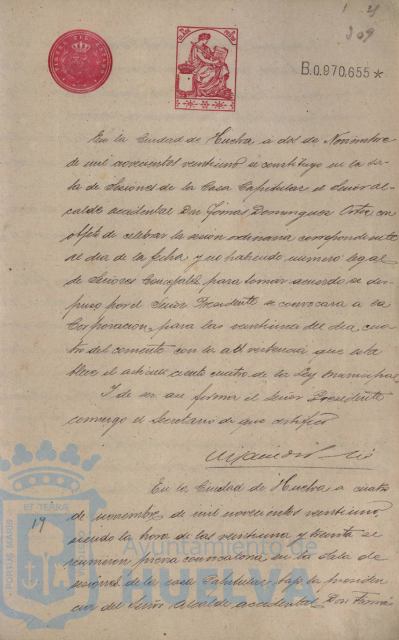 1 21
209
B.0,970.655 *
En la Ciudad de Huelva á dos de Noviembre
de mil novecientos veintiuno se constituyó en la Sa-
la de Sesiones de la Casa Capitular el Señor Al-
calde accidental Don Tomás Dominguez Ortiz con
objeto de celebrar la sesión ordinaria correspondiente
al dia de la fecha y no habiendo número legal
de Señores Concejales para tomar acuerdo se dis-
puso por el Señor Presidente se convocara a la
Corporación, para las veintiuna del dia cua-
tro del corriente con la advertencia que esta-
blece el artículo ciento cuatro de la Ley Municipal
Y de su firma el Señor Presidente
conmigo el Secretario de que certifico
En la Ciudad de Huelva a cuatro
de noviembre de mil novecientos veintiuno,
siendo la hora de las veintiuna y treinta se
reunieron previa convocatoria en la Sala de
sesiones de la casa Capitular bajo la presiden-
cia del Señor Alcalde accidental Don Tomás
19
PORTUS MARIS ET TERRAE
Ayuntamiento de
HUELVA